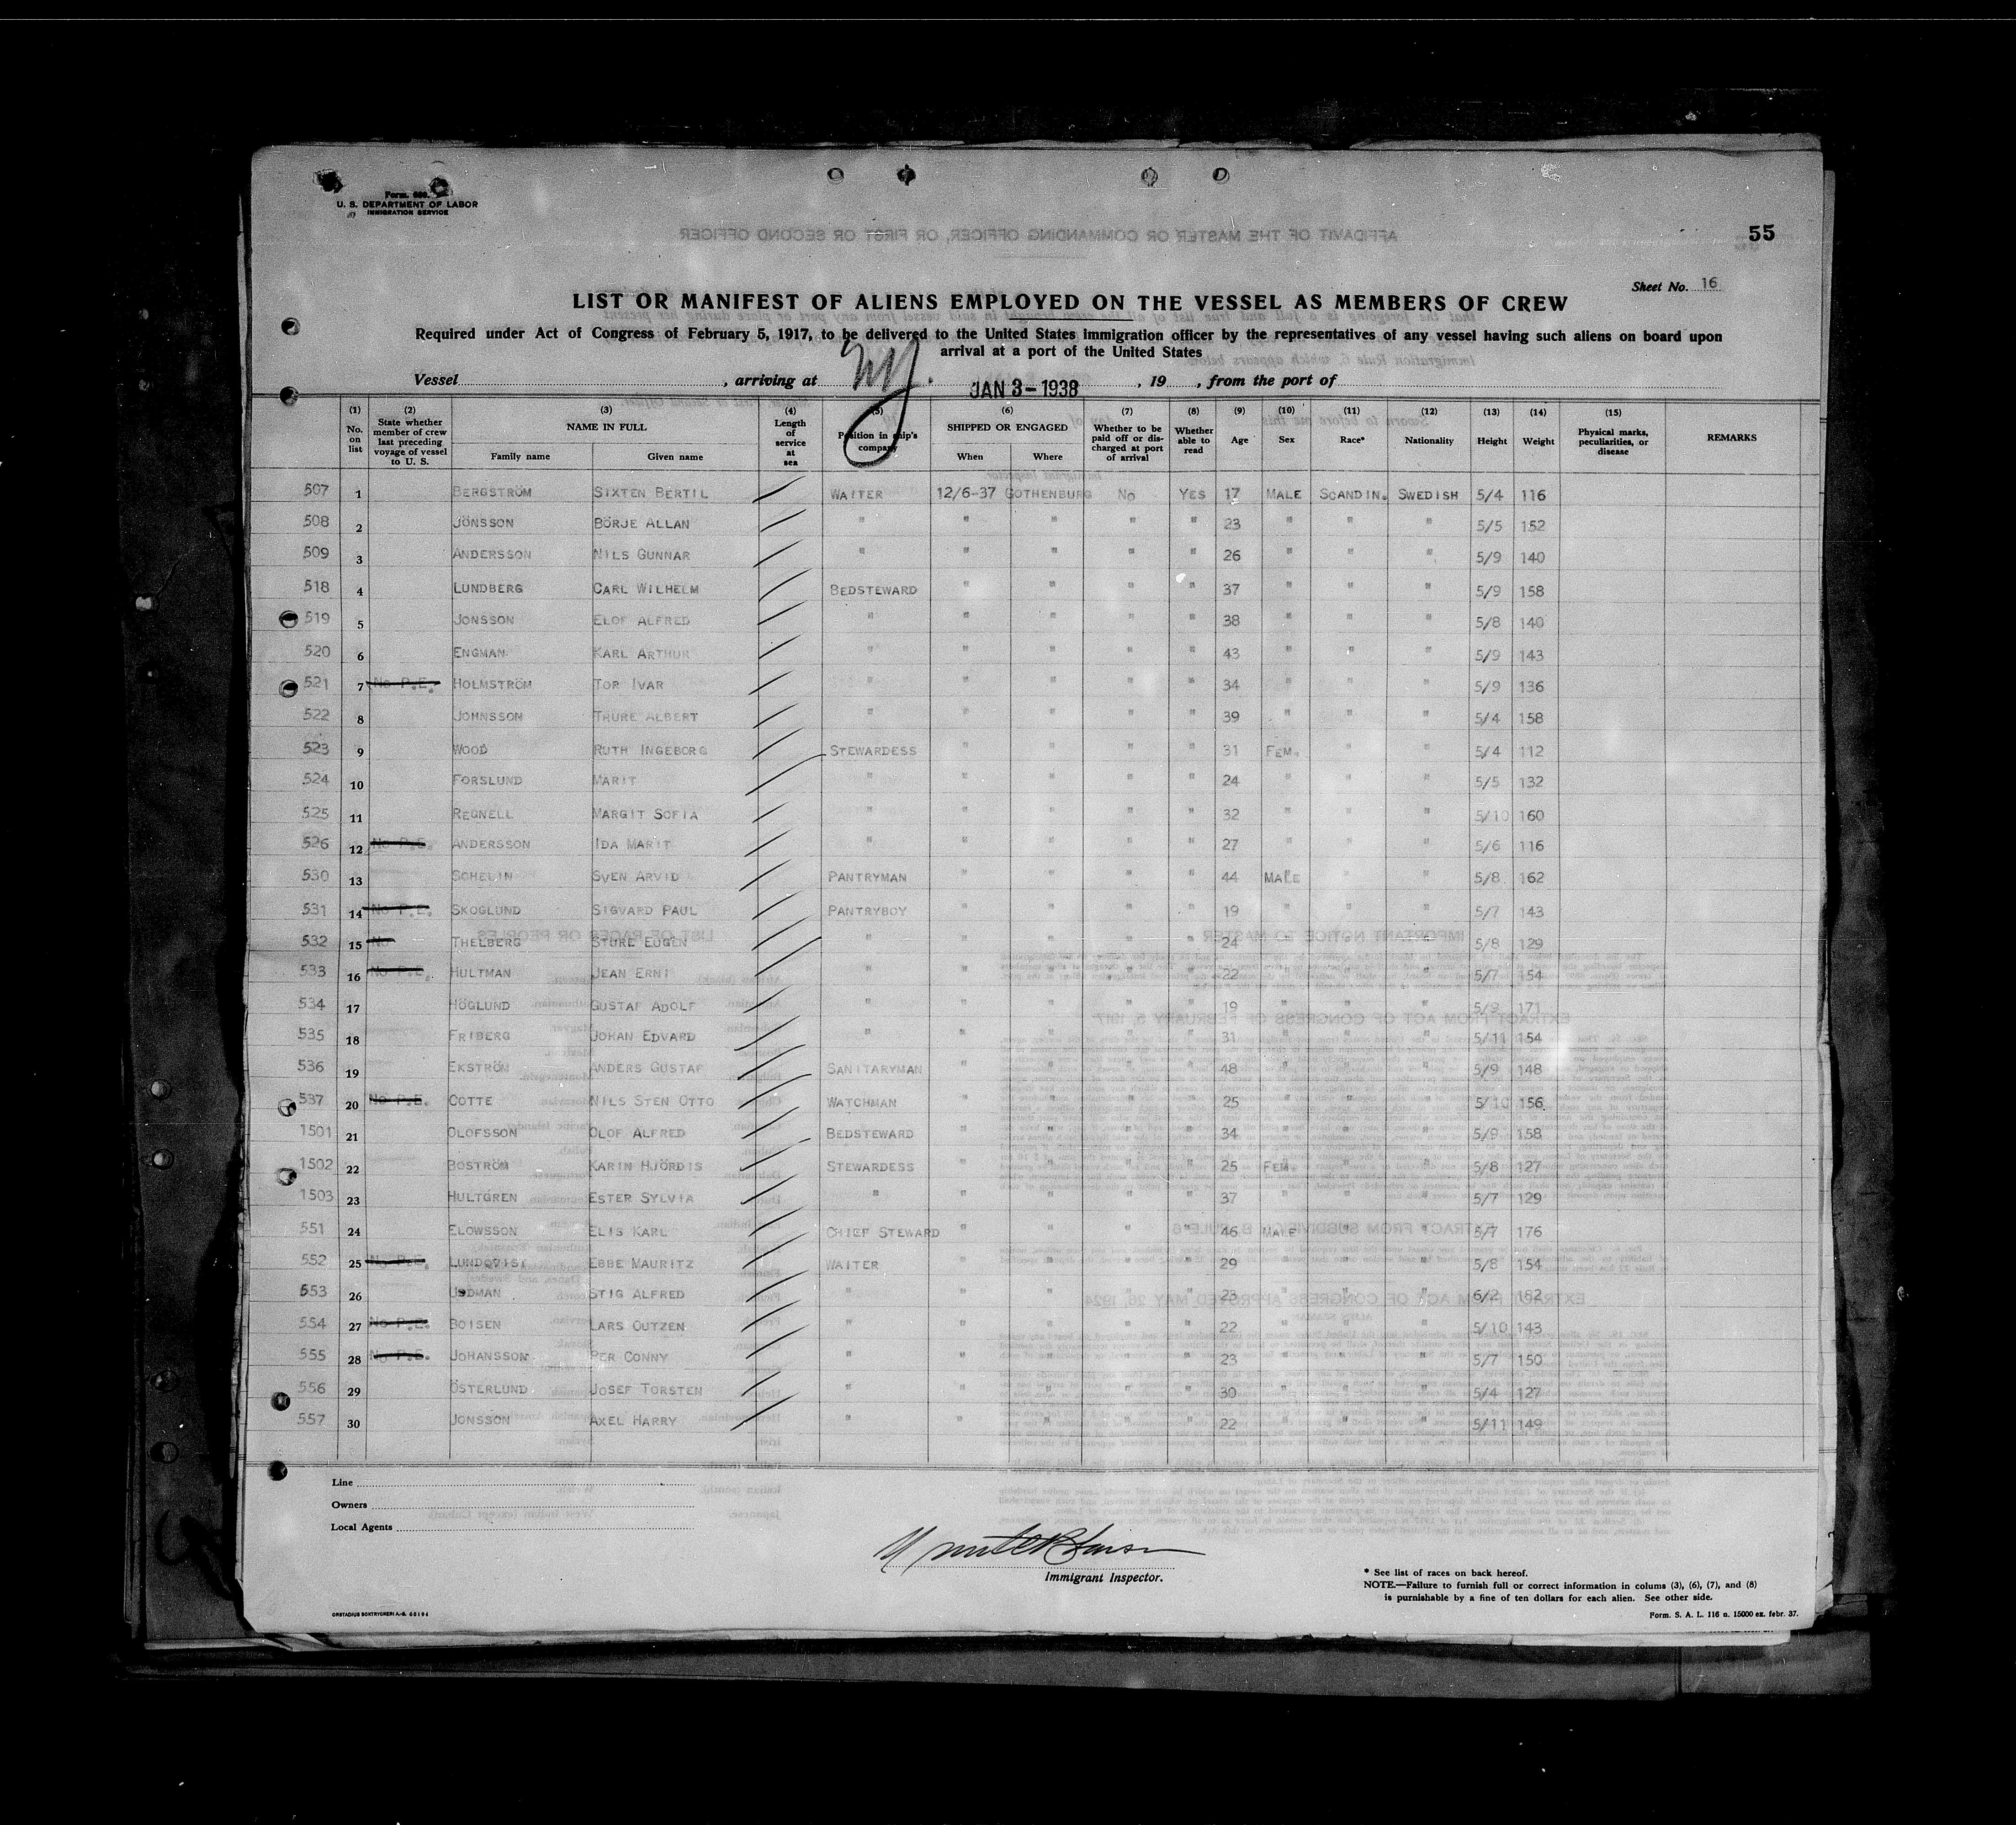 Form. 680.
U. S. DEPARTMENT OF LABOR
IMMIGRATION SERVICE
55
Sheet No. 16
LIST OR MANIFEST OF ALIENS EMPLOYED ON THE VESSEL AS MEMBERS OF CREW
Required under Act of Congress of February 5, 1917, to be delivered to the United States immigration officer by the representatives of any vessel having such aliens on board upon
arrival at a port of the United States
Vessel , arriving at NY. JAN 3-1938 , 19 , from the port of
(1) No. on list (2) State whether member of crew last preceding voyage of vessel to U. S. (3) NAME IN FULL Family name Given name (4) Length of service at sea (5) Position in ship's company (6) SHIPPED OR ENGAGED When Where (7) Whether to be paid off or discharged at port of arrival (8) Whether able to read (9) Age (10) Sex (11) Race* (12) Nationality (13) Height (14) Weight (15) Physical marks, peculiarities, or disease REMARKS
507 1 BERGSTRÖM SIXTEN BERTIL WAITER 12/6-37 GOTHENBURG NO YES 17 MALE SCANDIN. SWEDISH 5/4 116
508 2 JÖNSSON BÖRJE ALLAN " " " " " 23 " " " 5/5 152
509 3 ANDERSSON NILS GUNNAR " " " " " 26 " " " 5/9 140
518 4 LUNDBERG CARL WILHELM BEDSTEWARD " " " " 37 " " " 5/9 158
519 5 JONSSON ELOF ALFRED " " " " " 38 " " " 5/8 140
520 6 ENGMAN KARL ARTHUR " " " " " 43 " " " 5/9 143
521 7 No P.E. HOLMSTRÖM TOR IVAR " " " " " 34 " " " 5/9 136
522 8 JOHNSSON THURE ALBERT " " " " " 39 " " " 5/4 158
523 9 WOOD RUTH INGEBORG STEWARDESS " " " " 31 FEM. " " 5/4 112
524 10 FORSLUND MARIT " " " " " 24 " " " 5/5 132
525 11 REGNELL MARGIT SOFIA " " " " " 32 " " " 5/10 160
526 12 No P.E. ANDERSSON IDA MARIT " " " " " 27 " " " 5/6 116
530 13 SCHELIN SVEN ARVID PANTRYMAN " " " " 44 MALE " " 5/8 162
531 14 No P.E. SKOGLUND SIGVARD PAUL PANTRYBOY " " " " 19 " " " 5/7 143
532 15 No THELBERG STURE EUGEN " " " " " 24 " " " 5/8 129
533 16 No P.E. HULTMAN JEAN ERNI " " " " " 22 " " " 5/7 154
534 17 HÖGLUND GUSTAF ADOLF " " " " " 19 " " " 5/9 171
535 18 FRIBERG JOHAN EDVARD " " " " " 31 " " " 5/11 154
536 19 EKSTRÖM ANDERS GUSTAF SANITARYMAN " " " " 48 " " " 5/9 148
537 20 No P.E. COTTE NILS STEN OTTO WATCHMAN " " " " 25 " " " 5/10 156
1501 21 OLOFSSON OLOF ALFRED BEDSTEWARD " " " " 34 " " " 5/9 158
1502 22 BOSTRÖM KARIN HJÖRDIS STEWARDESS " " " " 25 FEM. " " 5/8 127
1503 23 HULTGREN ESTER SYLVIA " " " " " 37 " " " 5/7 129
551 24 ELOWSSON ELIS KARL CHIEF STEWARD " " " " 46 MALE " " 5/7 176
552 25 No P.E. LUNDQVIST EBBE MAURITZ WAITER " " " " 29 " " " 5/8 154
553 26 STIG ALFRED " " " " " 23 " " " 6/2 182
554 27 No P.E. BOISEN LARS OUTZEN " " " " " 22 " " " 5/10 143
555 28 No P.E. JOHANSSON PER CONNY " " " " " 23 " " " 5/7 150
556 29 ÖSTERLUND JOSEF TORSTEN " " " " " 30 " " " 5/4 127
557 30 JONSSON AXEL HARRY " " " " " 22 " " " 5/11 149
Line
Owners
Local Agents
Immigrant Inspector.
* See list of races on back hereof.
NOTE.—Failure to furnish full or correct information in colums (3), (6), (7), and (8)
is purnishable by a fine of ten dollars for each alien. See other side.
ORSTADIUS BOKTRYCKERI A.-B. 60194
Form. S. A. L. 116 n. 15000 ex. febr. 37.